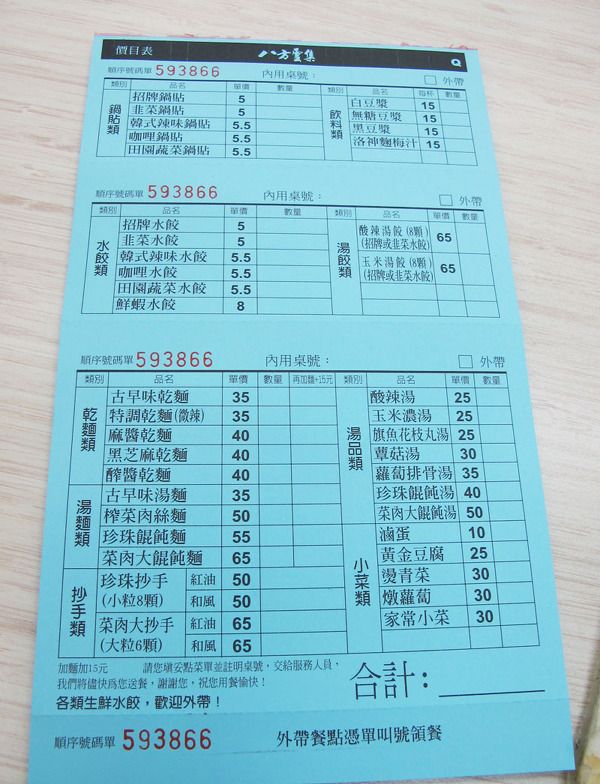 價目表 八方雲集 Q
順序號碼單 593866 內用桌號: □ 外帶
類別 品名 單價 數量 類別 品名 每杯 數量
鍋貼類 飲料類
招牌鍋貼 5 白豆漿 15
韭菜鍋貼 5 無糖豆漿 15
韓式辣味鍋貼 5.5 黑豆漿 15
咖哩鍋貼 5.5 洛神麴梅汁 15
田園蔬菜鍋貼 5.5
順序號碼單 593866 內用桌號: □ 外帶
類別 品名 單價 數量 品名 單價 數量
水餃類 湯餃類
招牌水餃 5 酸辣湯餃(8顆) 65
韭菜水餃 5 (招牌或韭菜水餃)
韓式辣味水餃 5.5 玉米湯餃(8顆) 65
咖哩水餃 5.5 (招牌或韭菜水餃)
田園蔬菜水餃 5.5
鮮蝦水餃 8
順序號碼單 593866 內用桌號: □ 外帶
類別 品名 單價 數量 再加麵+15元 類別 品名 單價 數量
乾麵類 湯品類
古早味乾麵 35 酸辣湯 25
特調乾麵(微辣) 35 玉米濃湯 25
麻醬乾麵 40 旗魚花枝丸湯 25
黑芝麻乾麵 40 蕈菇湯 30
酢醬乾麵 40 蘿蔔排骨湯 35
湯麵類
古早味湯麵 35 珍珠餛飩湯 40
榨菜肉絲麵 50 菜肉大餛飩湯 50
小菜類
珍珠餛飩麵 55 滷蛋 10
菜肉大餛飩麵 65 黃金豆腐 25
抄手類
珍珠抄手 紅油 50 燙青菜 30
(小粒8顆) 和風 50 燉蘿蔔 30
菜肉大抄手 紅油 65 家常小菜 30
(大粒6顆) 和風 65
加麵加15元 請您填妥點菜單並註明桌號，交給服務人員，
我們將儘快為您送餐，謝謝您，祝您用餐愉快！
各類生鮮水餃，歡迎外帶！
合計:
順序號碼單 593866 外帶餐點憑單叫號領餐